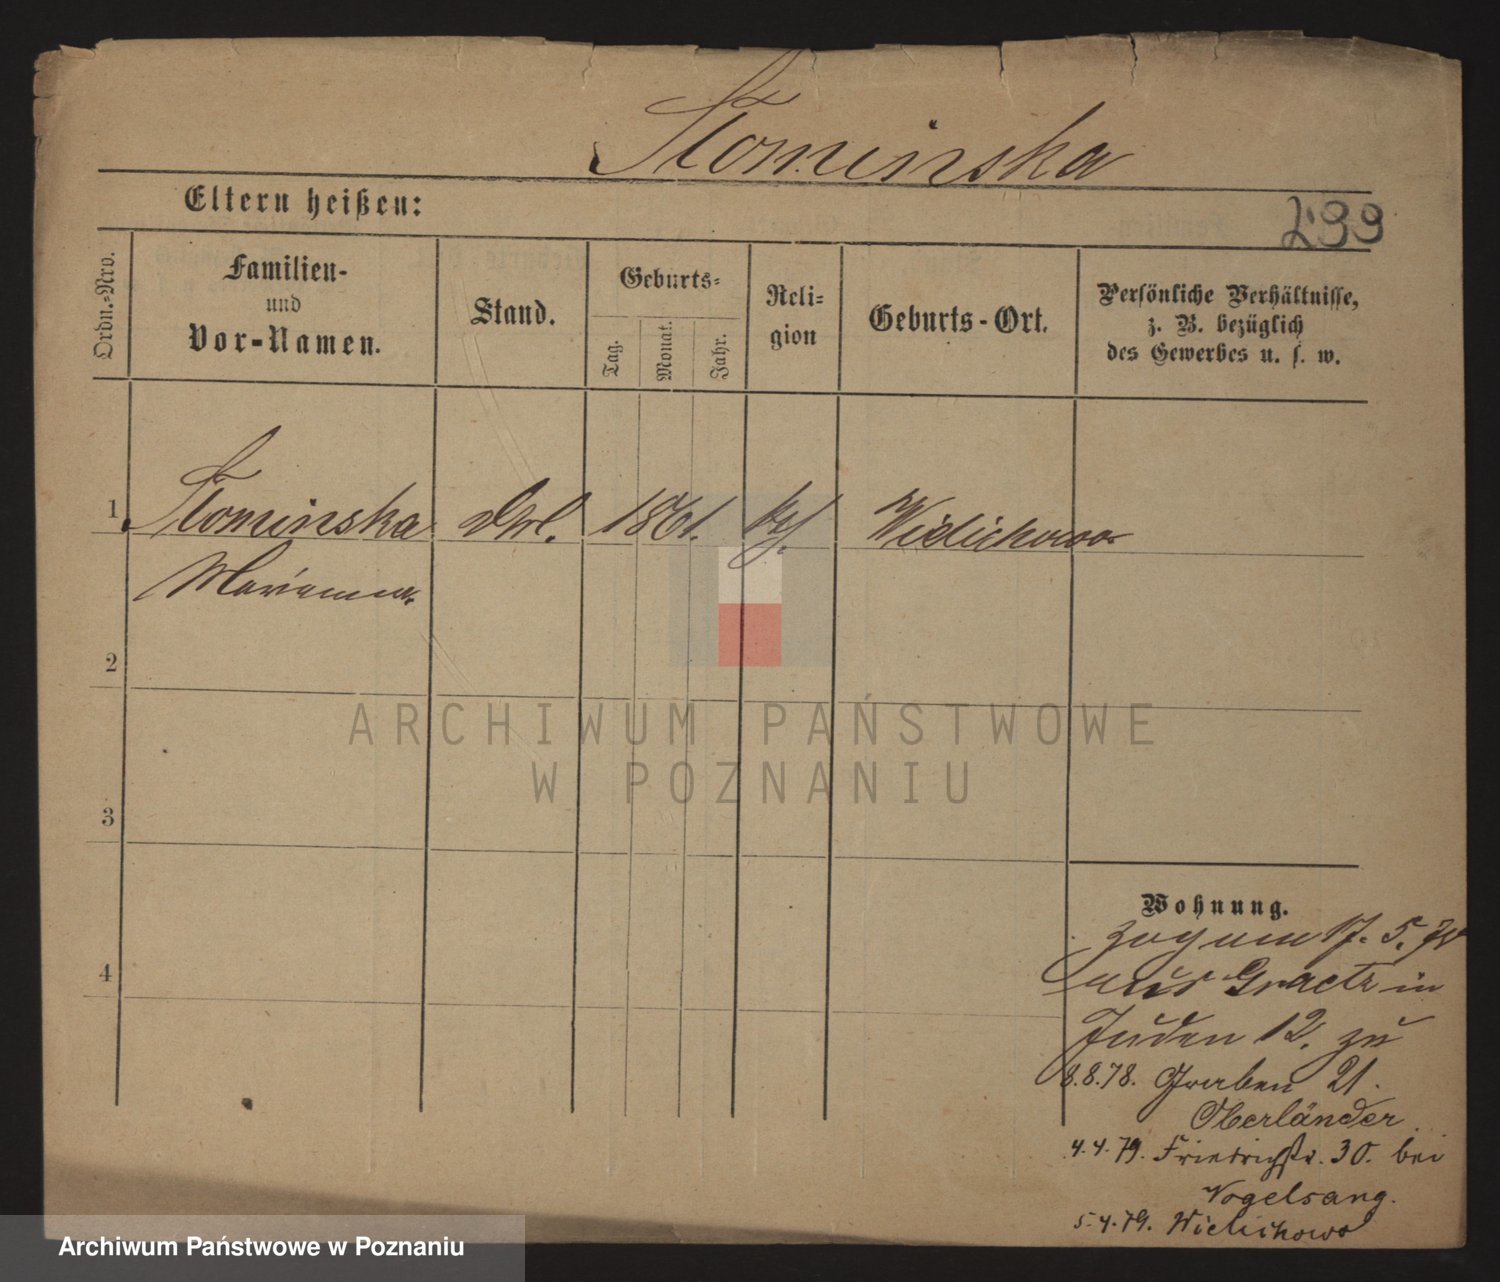 Słominska
Eltern heißen:
299
Ordn.-Nro.
Familien-
und
Vor-Namen.
Stand.
Geburts-
Tag.
Monat.
Jahr.
Reli-
gion
Geburts-Ort.
Persönliche Verhältnisse,
z. B. bezüglich
des Gewerbes u. s. w.
1
Słominska
1861.
Wielichowo
Marianna
2
3
4
ARCHIWUM PAŃSTWOWE
W POZNANIU
Wohnung.
zog am 17. 5. 78
aus Graetz in
Juden 12. zu
8.8.78. Graben 21.
Oberländer
4.4.79. Friedrichstr. 30. bei
Vogelsang.
5.4.79. Wielichowo
Archiwum Państwowe w Poznaniu